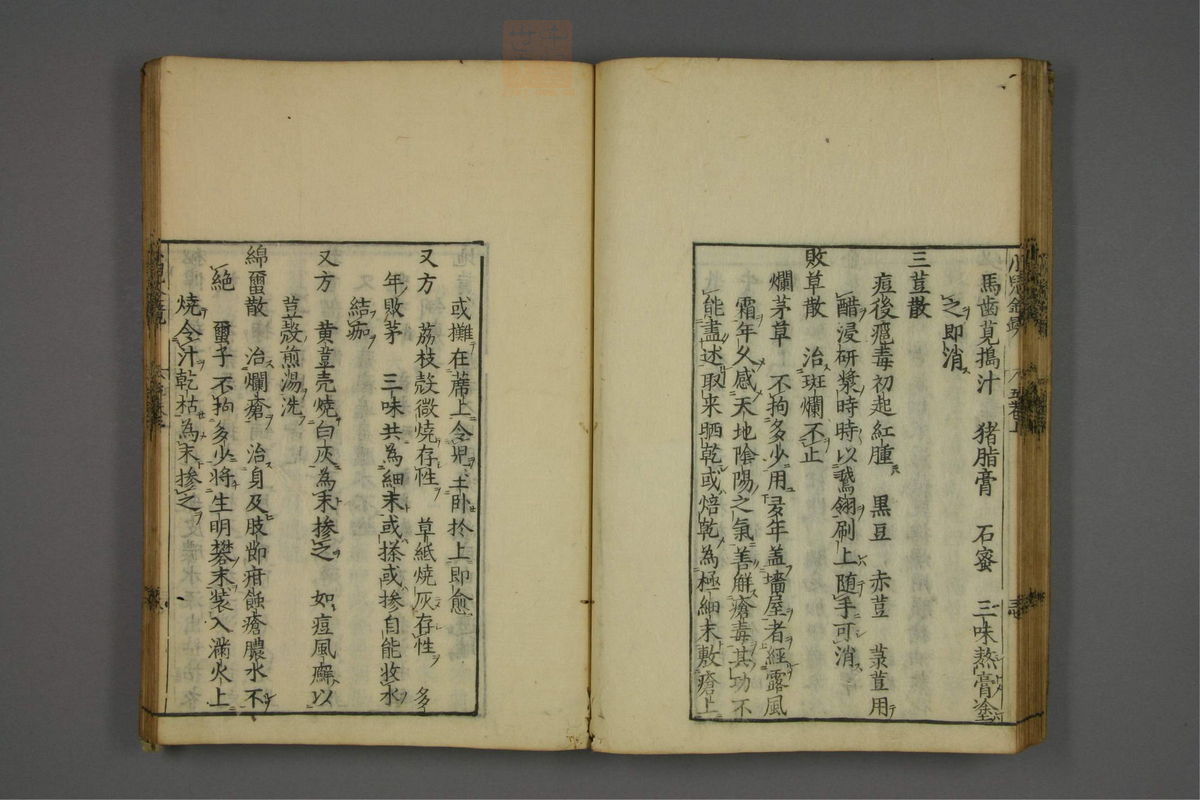 馬齒莧搗汁　猪脂膏　石蜜　三味熬膏塗
之即消
三荳散
痘後癰毒初起紅腫　黒豆　赤荳　菉荳用
醋浸研漿時時以鵞翎刷上随手可消
敗草散　治斑爛不止
爛茅草　不拘多少用多年盖墻屋者經露風
霜年久感天地陰陽之氣善解瘡毒其功不
能盡述取来晒乾或焙乾為極細末敷瘡上
或攤在蓆上令児士卧於上即愈
又方　荔枝殻微焼存性　草紙焼灰存性　多
年敗茅　三味共為細末或搽或掺自能收水
結痂
又方　黄荳壳焼白灰為末掺之　如痘風癬以
荳殻煎湯洗
綿蠒散　治爛瘡　治身及肢節疳蝕瘡膿水不
絶　蠒子不拘多少將生明礬末装入滿火上
焼令汁乾枯為末掺之